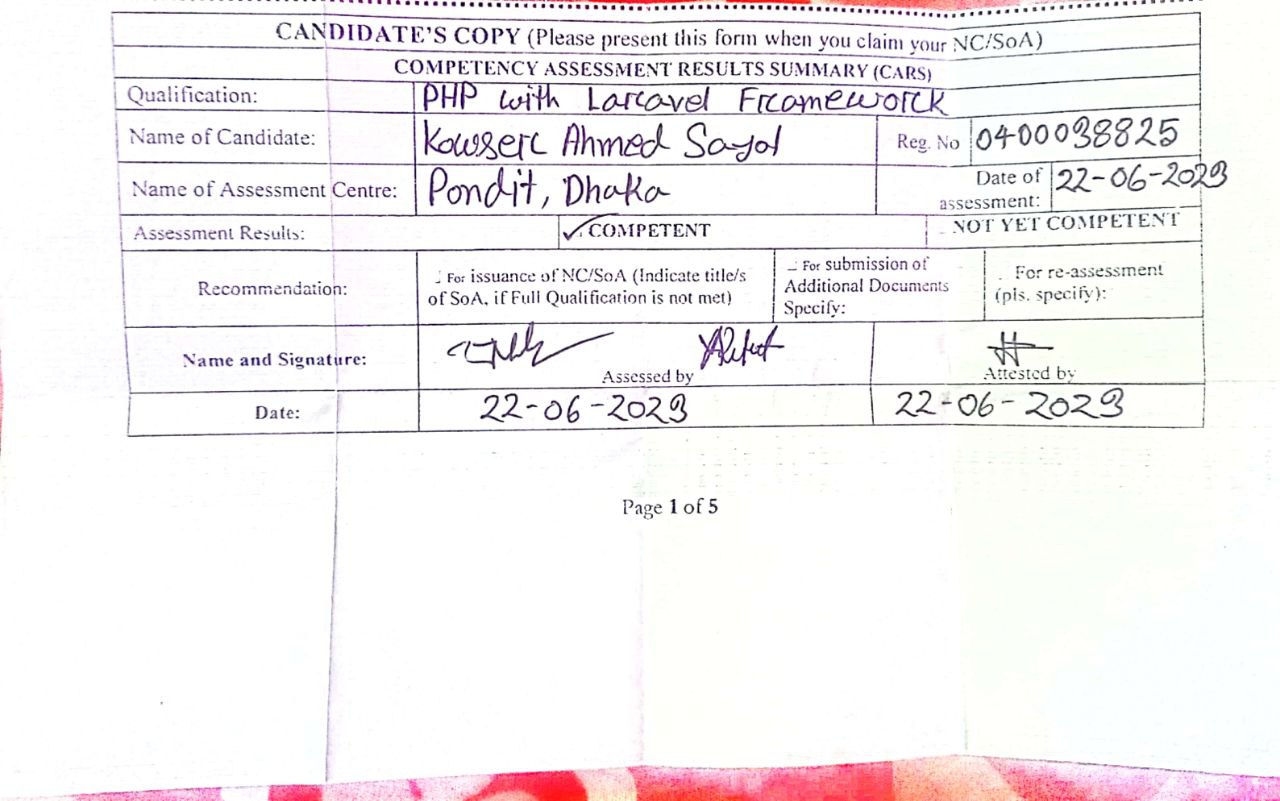 CANDIDATE'S COPY (Please present this form when you claim your NC/SoA)
COMPETENCY ASSESSMENT RESULTS SUMMARY (CARS)
Qualification: PHP with Laravel Framework
Name of Candidate: Kowser Ahmed Sayol Reg. No 0400038825
Name of Assessment Centre: Pondit, Dhaka Date of assessment: 22-06-2023
Assessment Results: COMPETENT NOT YET COMPETENT
Recommendation: For issuance of NC/SoA (Indicate title/s of SoA, if Full Qualification is not met) For submission of Additional Documents Specify: For re-assessment (pls. specify):
Name and Signature: Assessed by Attested by
Date: 22-06-2023 22-06-2023
Page 1 of 5